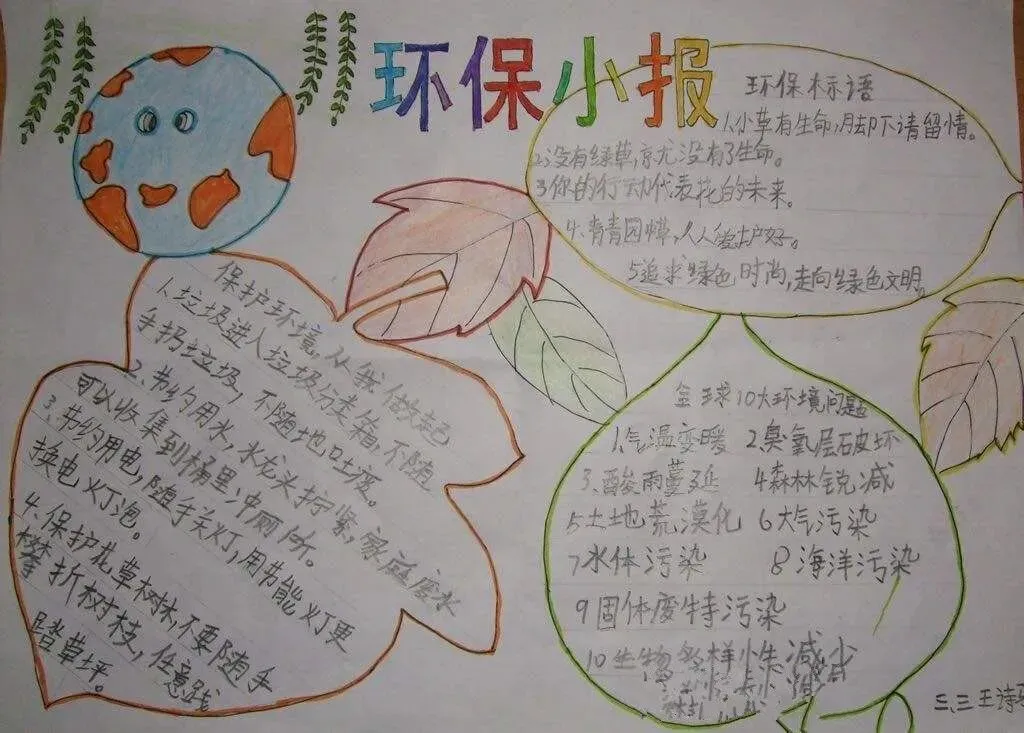 环保小报
环保标语
1.小草有生命,脚下请留情。
2.没有绿草,就没有了生命。
3你的行动代表花的未来。
4、青青园
5追求绿色时尚,走向绿色文明。
保护环境,从我做起
1.垃圾进入垃圾分类箱,不随
手扔垃圾,不随地吐痰。
2.节约用水,水龙头拧紧,家庭废水
可以收集到桶里,冲厕所。
3.节约用电,随手关灯,用节能灯更
换电灯泡。
4.保护花草树林,不要随手
攀折树枝,任意践
踏草坪。
全球10大环境问题
1.气温变暖 2.臭氧层破坏
3.酸雨蔓延 4森林锐减
5土地荒漠化 6大气污染
7水体污染 8海洋污染
9固体废特污染
10生物多样性减少
三、三王诗